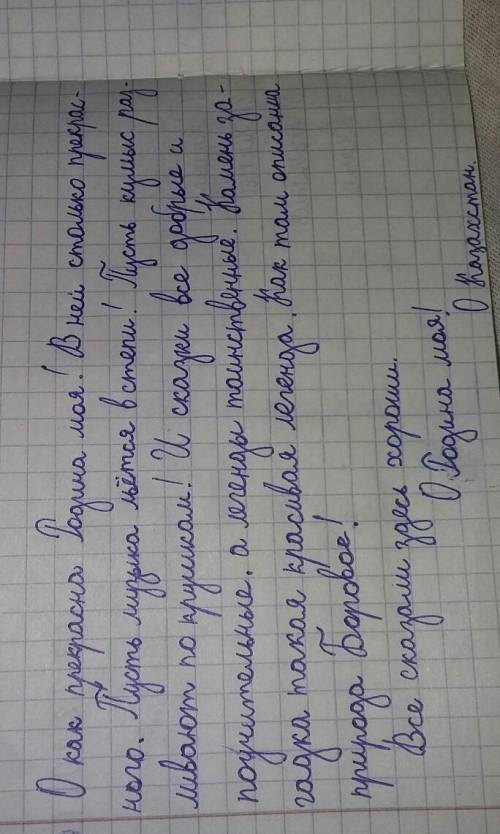 О как прекрасна Родина моя! В ней столько прекрас-
ного. Пусть музыка льётся в степи! Пусть кумыс раз-
ливают по кружкам! И сказки все добрые и
поучительные, а легенды таинственные. Камень за-
гадка такая красивая легенда. Как там описана
природа Боровое!
Все сказали здесь хороши.
О Родина моя!
О Казахстан.